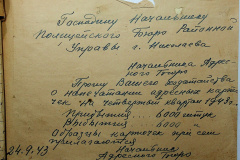 Господину Начальнику
Полицейского Бюро Районной
Управы г. Николаева
Начальника Адрес-
ного Бюро
Прошу Вашего ходатайства
о напечатании адресных карто-
чек на четвертый квартал 1943 г.
Прибытия ... 6000 штук
Выбытия ... 6000
Образцы карточек при сем
прилагаются
24.9.43 Начальник
Адресного Бюро